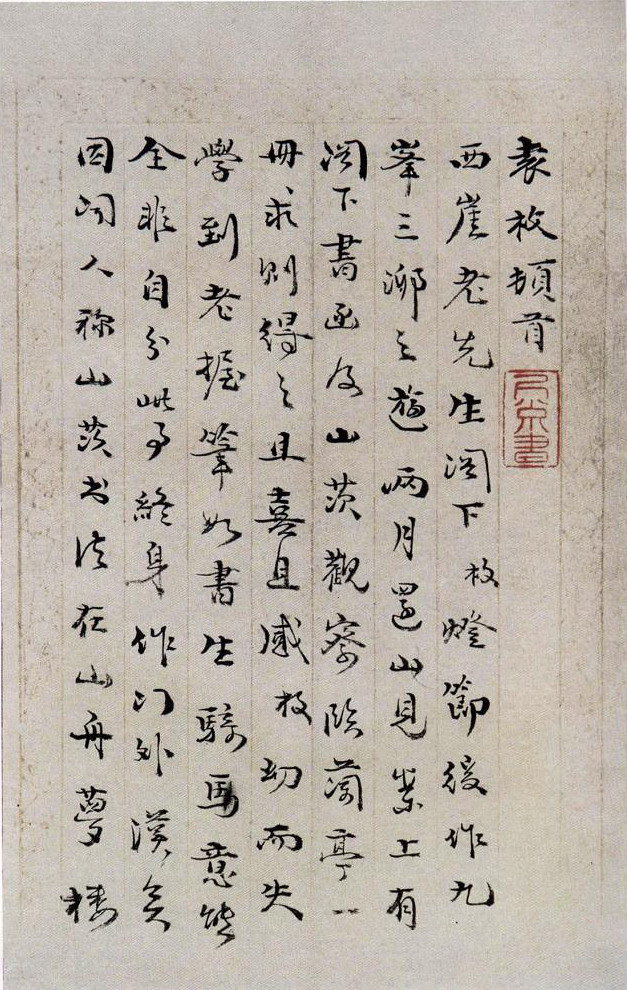 袁枚頓首
西崖老先生閣下枚燈節後作九
峯三泖之遊兩月還山見案上有
閣下書函及山茨觀察臨蘭亭一
冊求則得之且喜且感枚幼而失
學到老握筆如書生騎馬意態
全非自分此事終身作門外漢矣
因聞人稱山茨书法在山舟夢樓